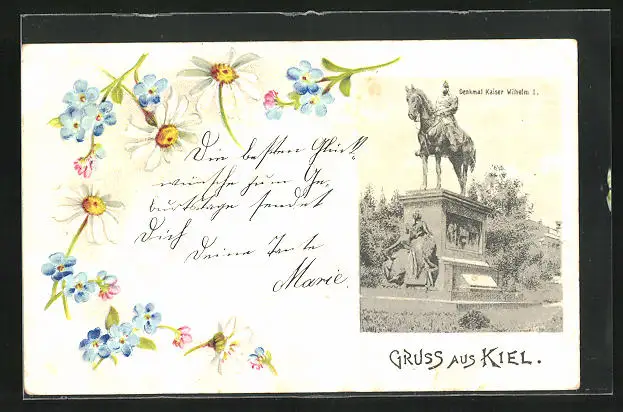 Denkmal Kaiser Wilhelm I.
Die besten Glück-
wünsche zum Ge-
burtstage sendet
Dich
Deine Tante
Marie.
GRUSS AUS KIEL.